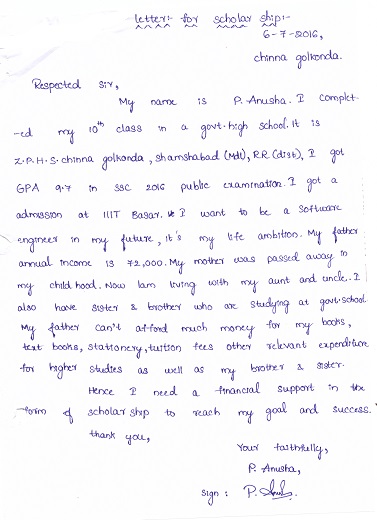 letter:- for scholar ship:-
6-7-2016,
chinna golkonda.
Respected sir,
My name is P. Anusha. I complet-
-ed my 10th class in a govt. high school. it is
Z.P.H.S. chinna golkonda, shamshabad (Mdl), R.R (dist), I got
GPA 9.7 in SSC 2016 public examination. I got a
admission at IIIT Basar. I want to be a software
engineer in my future, it's my life ambition. My father
annual income is 72,000. My mother was passed away in
my child hood. Now Iam living with my aunt and uncle. I
also have sister & brother who are studying at govt. school
My father can't afford much money for my books,
text books, stationery, tuition fees other relevant expenditure
for higher studies as well as my brother & sister.
Hence I need a financial support in the
form of scholar ship to reach my goal and success.
thank you,
Your faithfully,
P. Anusha,
Sign : P. Anusha.